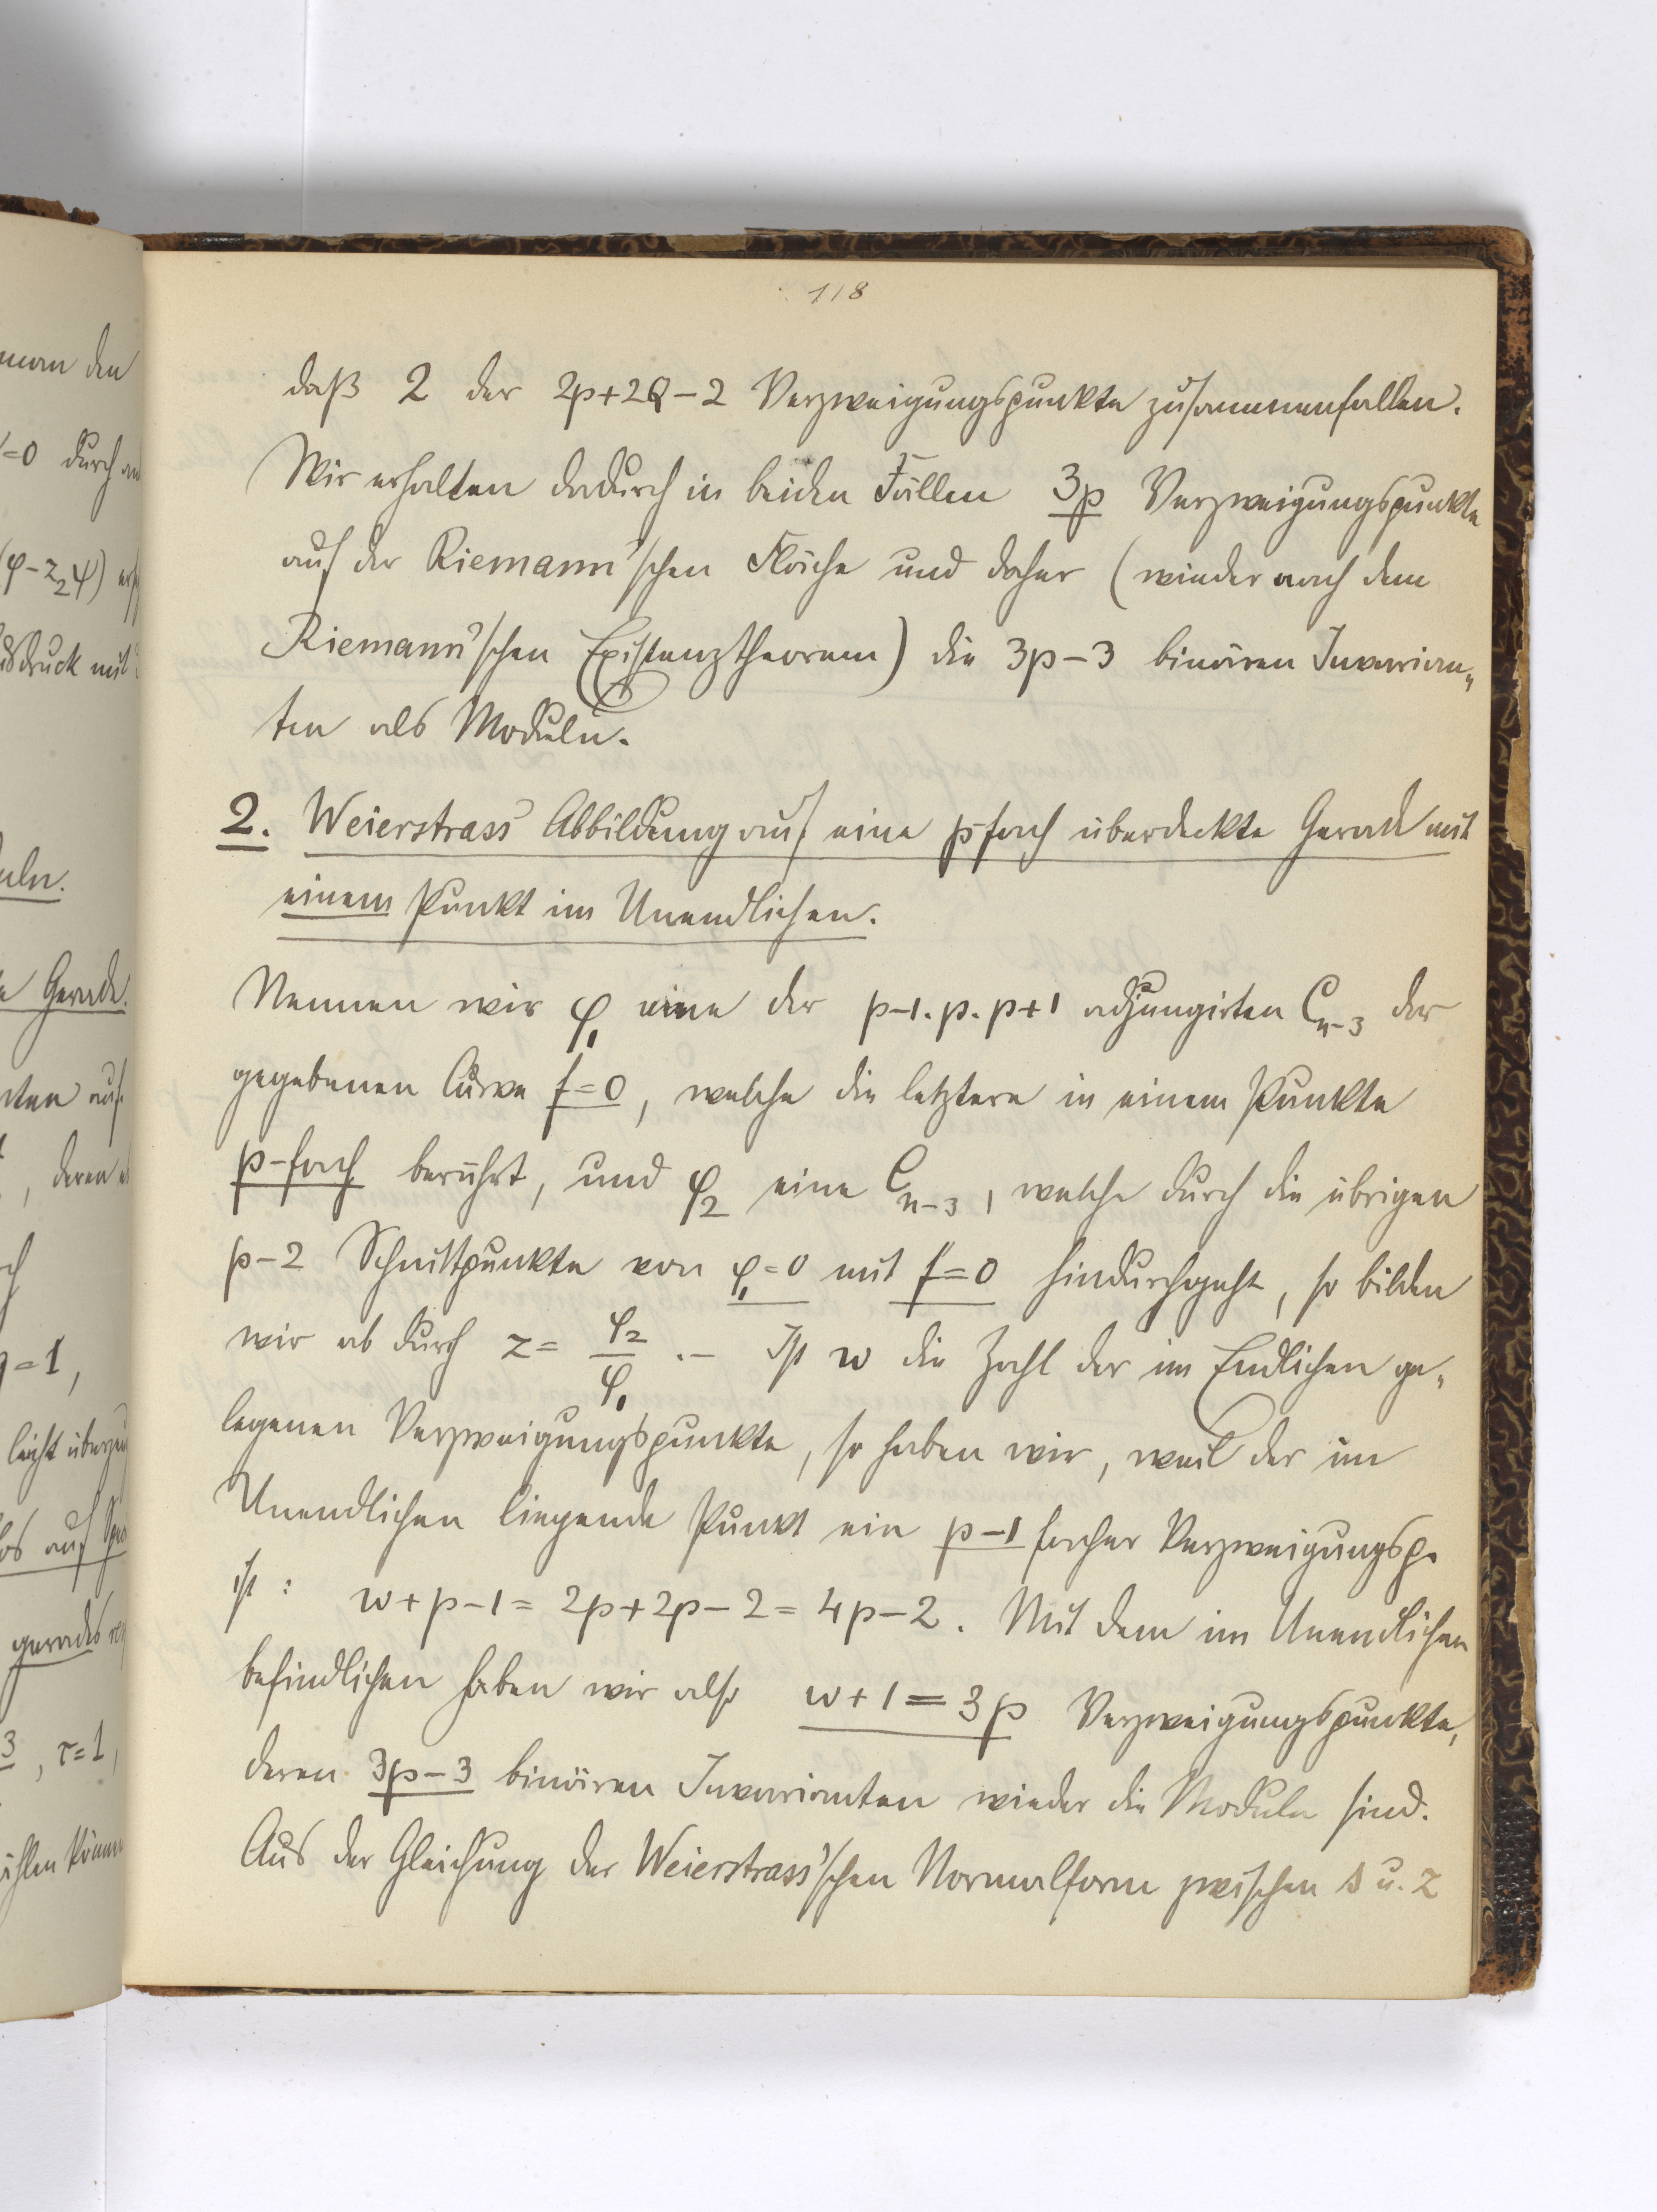 118
daß 2 der 2p+2Q-2 Verzweigungspunkte zusammenfallen.
Wir erhalten dadurch in beiden Fällen 3p Verzweigungspunkte
auf der Riemann'schen Fläche und daher (wieder nach dem
Riemann'schen Existenztheorem) die 3p-3 binären Invarian„
ten als Moduln.
2. Weierstrass' Abbildung auf eine p-fach überdeckte Gerade mit
einem Punkt im Unendlichen.
Nennen wir φ₁ eine der p-1.p.p+1 adjungirten C_{n-3} der
gegebenen Curve f=0, welche die letztere in einem Punkte
p-fach berührt, und φ₂ eine C_{n-3}, welche durch die übrigen
p-2 Schnittpunkte von φ₁=0 mit f=0 hindurchgeht, so bilden
wir ab durch z = φ₂/φ₁ .- Ist w die Zahl der im Endlichen ge„
legenen Verzweigungspunkte, so haben wir, weil der im
Unendlichen liegende Punkt ein p-1 facher Verzweigungsp.
ist: w+p-1 = 2p+2p-2 = 4p-2. Mit dem im Unendlichen
befindlichen haben wir also w+1=3p Verzweigungspunkte,
deren 3p-3 binären Invarianten wieder die Moduln sind.
Aus der Gleichung der Weierstrass'schen Normalform zwischen s u. z
man den
=0 durch
(φ-z₂ψ)
druck mit
uln.
Gerade.
auf
, deren
g=1,
leicht
auf
gerades
3, τ=1,